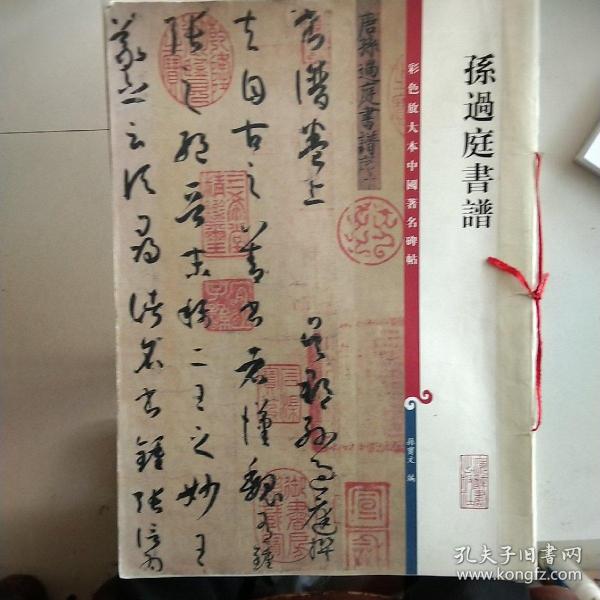 孫過庭書譜
彩色放大本中國著名碑帖
孫寶文 編
唐孫過庭書譜
書譜卷上 吳郡孫過庭撰
夫自古之善書者漢魏有鍾
張之絕晉末稱二王之妙王
羲之云頃尋諸名書鍾張信為
御書房
孔夫子旧书网
www.kongfz.com